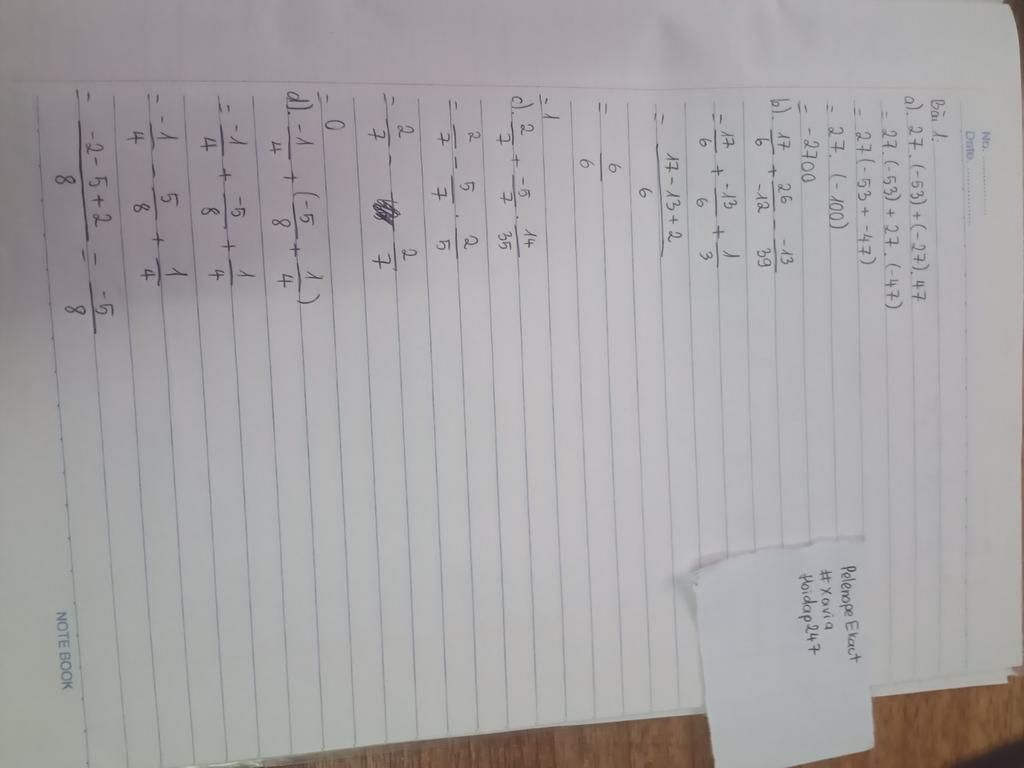 No. ...............
Date. ...............
Bài 1:
a). 27. (-53) + (-27). 47
= 27 (-53) + 27. (-47)
= 27 (-53 + -47)
= 27. (-100)
= -2700
b). 17/6 + 26/-12 - -13/39
= 17/6 + -13/6 + 1/3
= 17-13+2/6
= 6/6
= 1
c). 2/7 + -5/7 . 14/35
= 2/7 - 5/7 . 2/5
= 2/7 - 2/7
= 0
d). -1/4 + (-5/8 + 1/4)
= -1/4 + -5/8 + 1/4
= -1/4 - 5/8 + 1/4
= -2-5+2/8 = -5/8
PelempeEkact
#Xavia
Hoidap247
NOTE BOOK